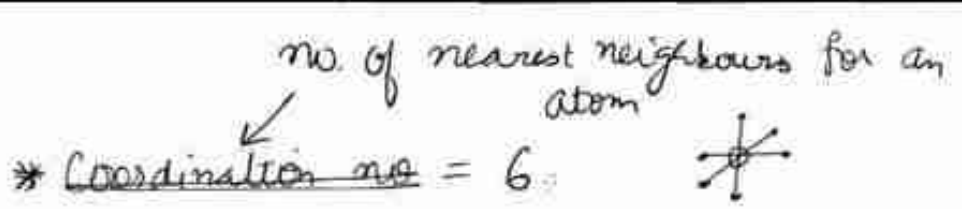 no. of nearest neighbours for an
atom
* Coordination no = 6